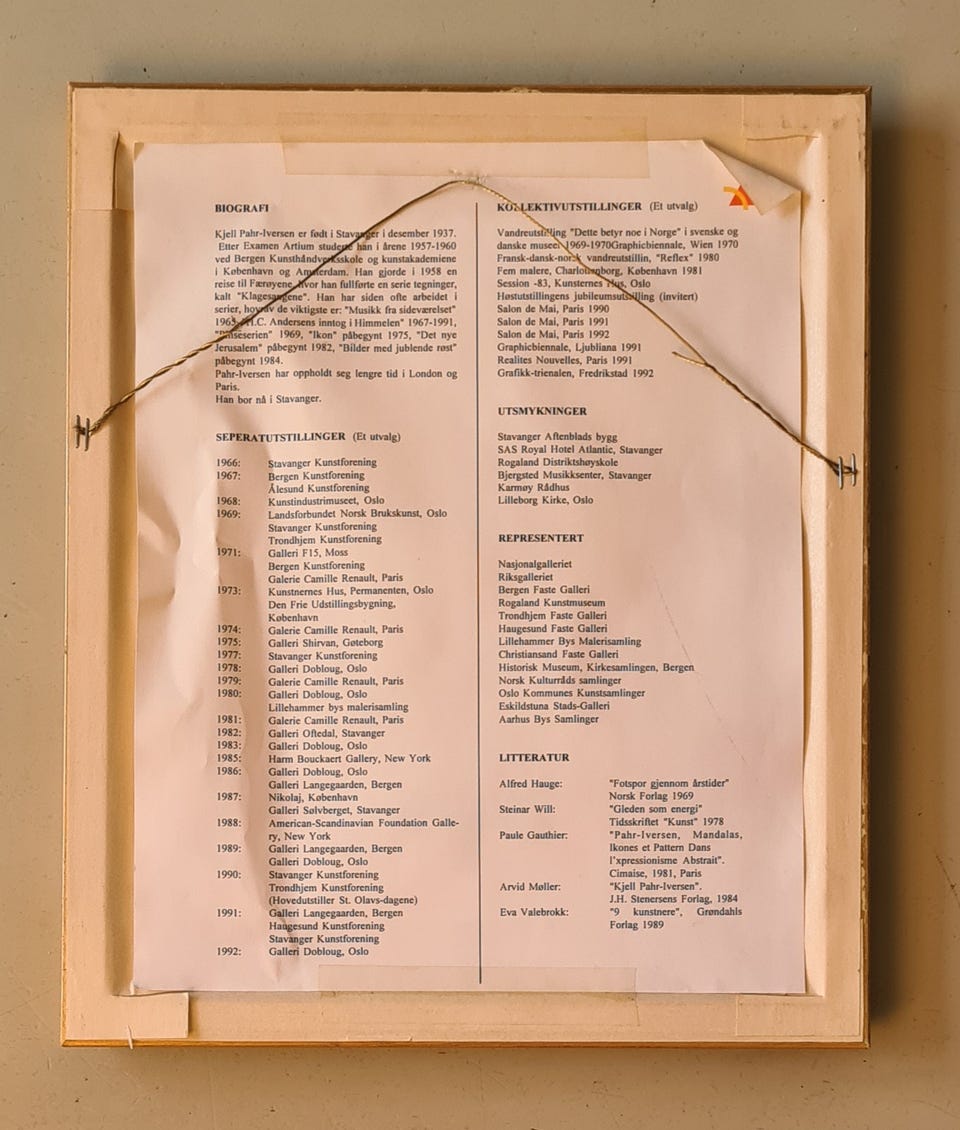 BIOGRAFI
Kjell Pahr-Iversen er født i Stavanger i desember 1937.
Etter Examen Artium studerte han i årene 1957-1960
ved Bergen Kunsthåndverksskole og kunstakademiene
i København og Amsterdam. Han gjorde i 1958 en
reise til Færøyene, hvor han fullførte en serie tegninger,
kalt "Klagesangene". Han har siden ofte arbeidet i
serier, hvorav de viktigste er: "Musikk fra sideværelset"
1965, "H.C. Andersens inntog i Himmelen" 1967-1991,
1969, "Ikon" påbegynt 1975, "Det nye
Jerusalem" påbegynt 1982, "Bilder med jublende røst"
påbegynt 1984.
Pahr-Iversen har oppholdt seg lengre tid i London og
Paris.
Han bor nå i Stavanger.
SEPERATUTSTILLINGER (Et utvalg)
1966: Stavanger Kunstforening
1967: Bergen Kunstforening
Ålesund Kunstforening
1968: Kunstindustrimuseet, Oslo
1969: Landsforbundet Norsk Brukskunst, Oslo
Stavanger Kunstforening
Trondhjem Kunstforening
1971: Galleri F15, Moss
Bergen Kunstforening
Galerie Camille Renault, Paris
1973: Kunstnernes Hus, Permanenten, Oslo
Den Frie Udstillingsbygning,
København
1974: Galerie Camille Renault, Paris
1975: Galleri Shirvan, Gøteborg
1977: Stavanger Kunstforening
1978: Galleri Dobloug, Oslo
1979: Galerie Camille Renault, Paris
1980: Galleri Dobloug, Oslo
Lillehammer bys malerisamling
1981: Galerie Camille Renault, Paris
1982: Galleri Oftedal, Stavanger
1983: Galleri Dobloug, Oslo
1985: Harm Bouckaert Gallery, New York
1986: Galleri Dobloug, Oslo
Galleri Langegaarden, Bergen
1987: Nikolaj, København
Galleri Sølvberget, Stavanger
1988: American-Scandinavian Foundation Galle-
ry, New York
1989: Galleri Langegaarden, Bergen
Galleri Dobloug, Oslo
1990: Stavanger Kunstforening
Trondhjem Kunstforening
(Hovedutstiller St. Olavs-dagene)
1991: Galleri Langegaarden, Bergen
Haugesund Kunstforening
Stavanger Kunstforening
1992: Galleri Dobloug, Oslo
KOLLEKTIVUTSTILLINGER (Et utvalg)
Vandreutstilling "Dette betyr noe i Norge" i svenske og
danske museer 1969-1970Graphicbiennale, Wien 1970
Fransk-dansk-norsk vandreutstillin, "Reflex" 1980
Fem malere, Charlottenborg, København 1981
Session -83, Kunsternes Hus, Oslo
Høstutstillingens jubileumsutstilling (invitert)
Salon de Mai, Paris 1990
Salon de Mai, Paris 1991
Salon de Mai, Paris 1992
Graphicbiennale, Ljubliana 1991
Realites Nouvelles, Paris 1991
Grafikk-trienalen, Fredrikstad 1992
UTSMYKNINGER
Stavanger Aftenblads bygg
SAS Royal Hotel Atlantic, Stavanger
Rogaland Distriktshøyskole
Bjergsted Musikksenter, Stavanger
Karmøy Rådhus
Lilleborg Kirke, Oslo
REPRESENTERT
Nasjonalgalleriet
Riksgalleriet
Bergen Faste Galleri
Rogaland Kunstmuseum
Trondhjem Faste Galleri
Haugesund Faste Galleri
Lillehammer Bys Malerisamling
Christiansand Faste Galleri
Historisk Museum, Kirkesamlingen, Bergen
Norsk Kulturråds samlinger
Oslo Kommunes Kunstsamlinger
Eskildstuna Stads-Galleri
Aarhus Bys Samlinger
LITTERATUR
Alfred Hauge: "Fotspor gjennom årstider"
Norsk Forlag 1969
Steinar Will: "Gleden som energi"
Tidsskriftet "Kunst" 1978
Paule Gauthier: "Pahr-Iversen, Mandalas,
Ikones et Pattern Dans
l'xpressionisme Abstrait".
Cimaise, 1981, Paris
Arvid Møller: "Kjell Pahr-Iversen".
J.H. Stenersens Forlag, 1984
Eva Valebrokk: "9 kunstnere", Grøndahls
Forlag 1989